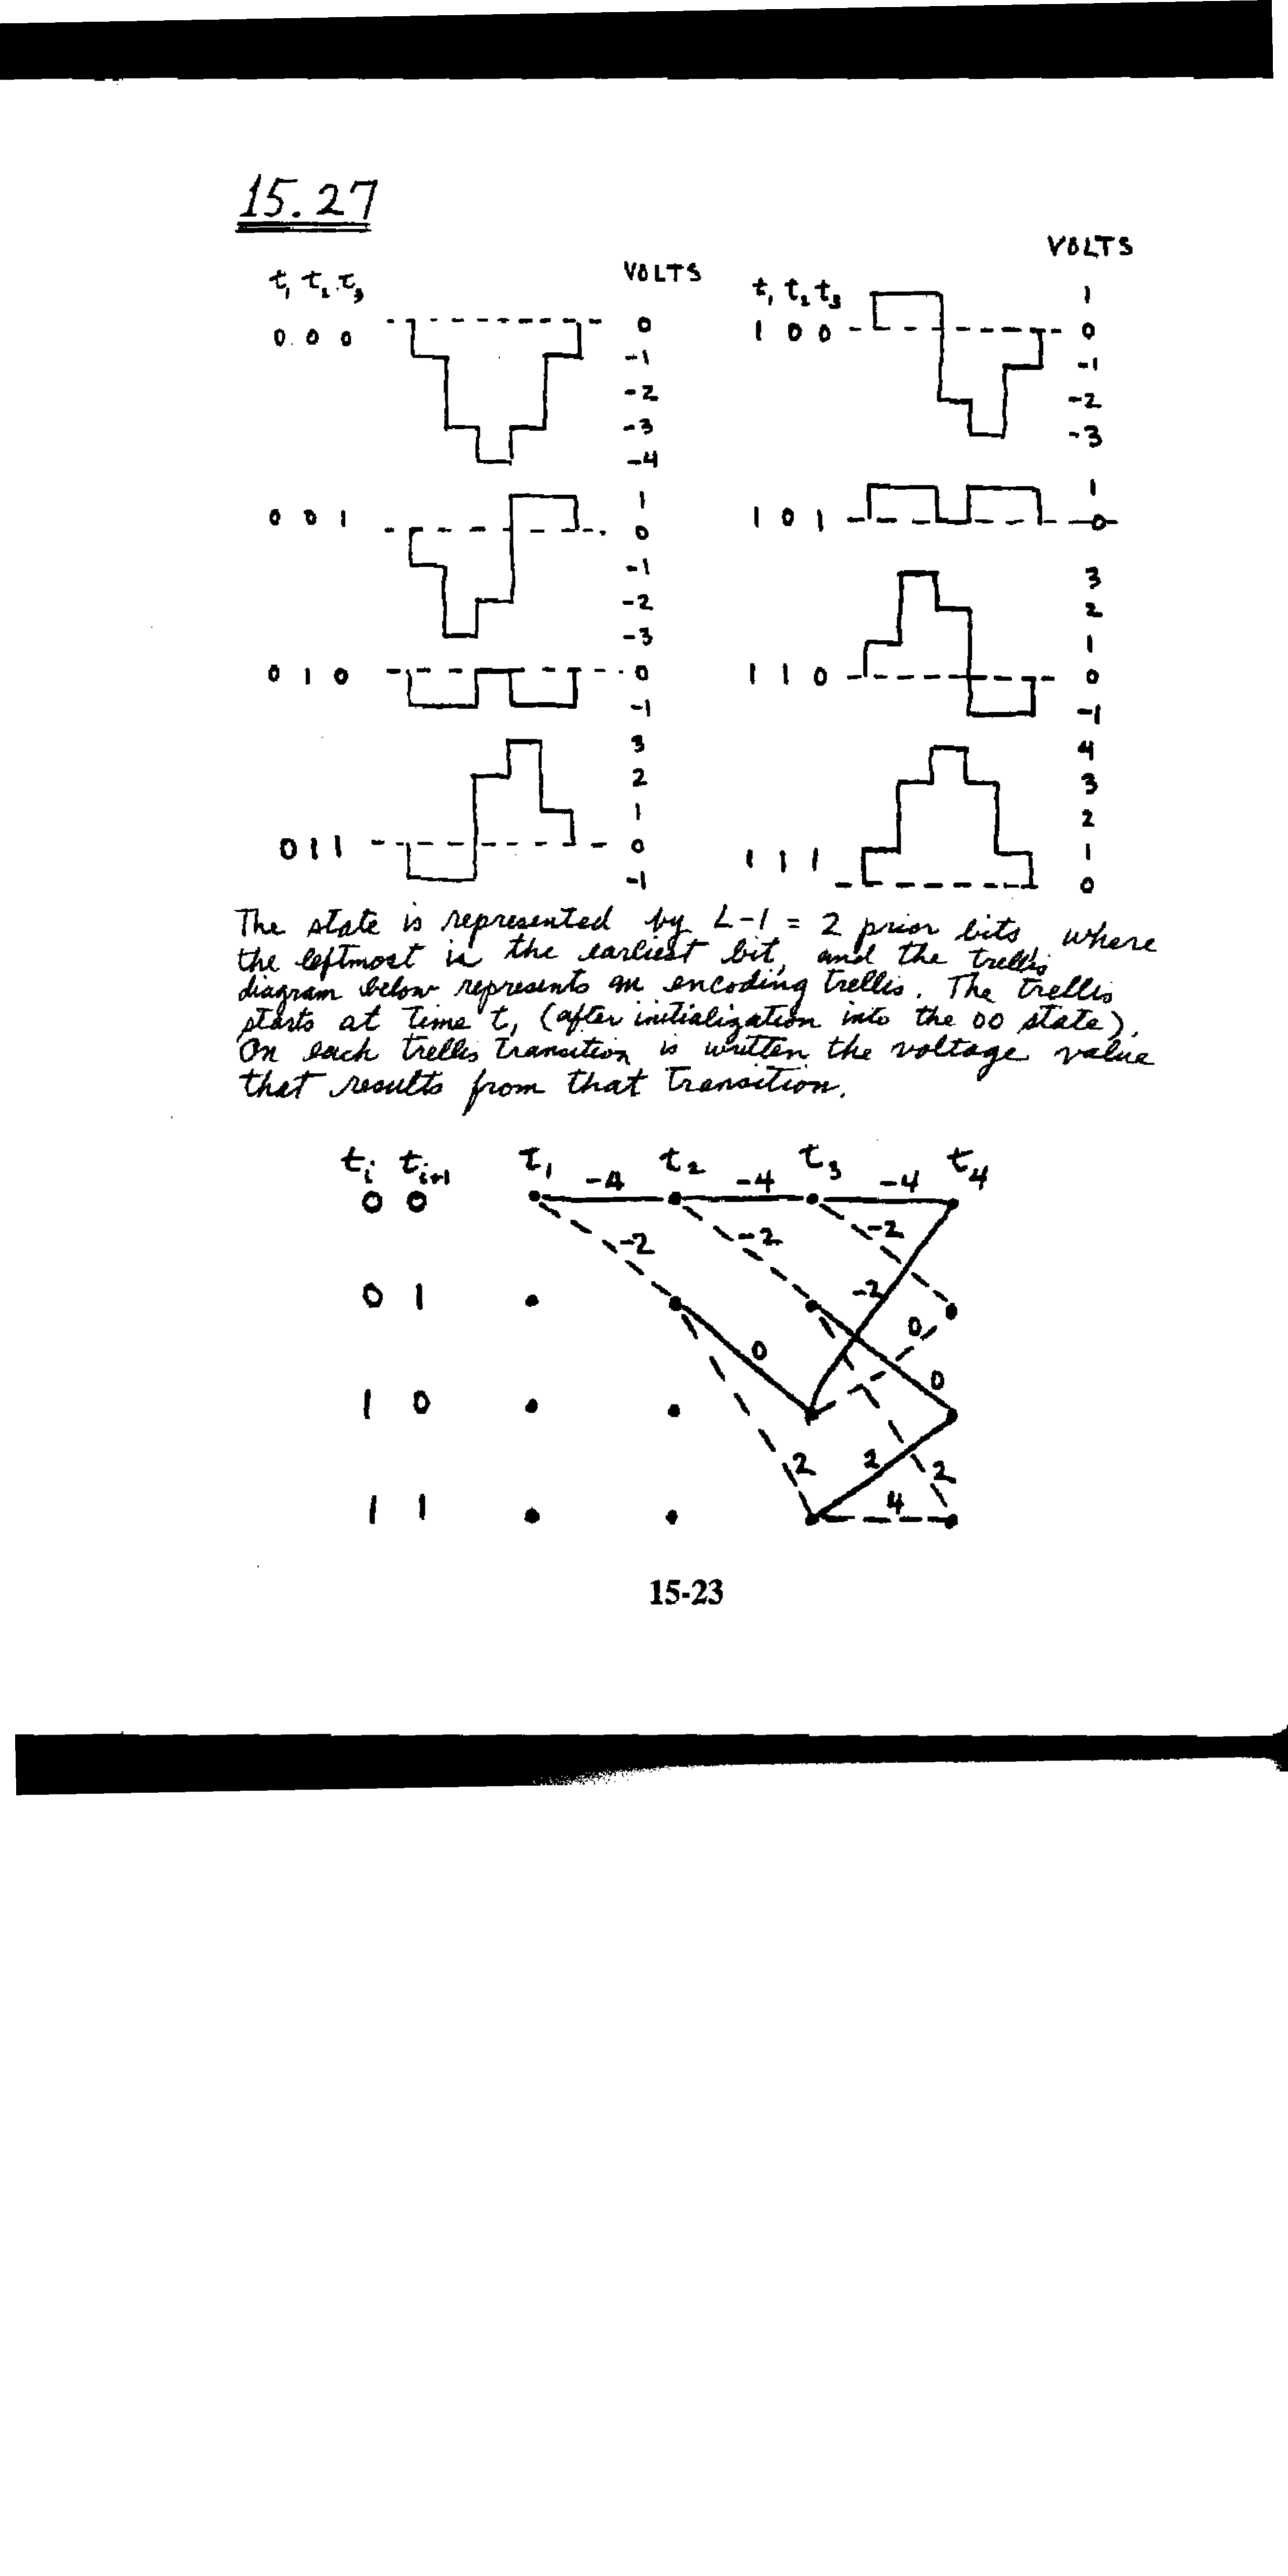 15.27
VOLTS
VOLTS
t₁ t₂ t₃
t₁ t₂ t₃
0 0 0
0
-1
-2
-3
-4
1 0 0
1
0
-1
-2
-3
0 0 1
1
0
-1
-2
-3
1 0 1
1
0
0 1 0
0
-1
1 1 0
3
2
1
0
-1
0 1 1
3
2
1
0
-1
1 1 1
4
3
2
1
0
The state is represented by L-1 = 2 prior bits, where
the leftmost is the earliest bit, and the trellis
diagram below represents an encoding trellis. The trellis
starts at time t₁ (after initialization into the 00 state).
On each trellis transition is written the voltage value
that results from that transition.
tᵢ tᵢ₊₁ t₁ t₂ t₃ t₄
0 0 -4 -4 -4
-2 -2 -2
0 1 -2 0
0 0
1 0
2 2 2
1 1 4
15-23